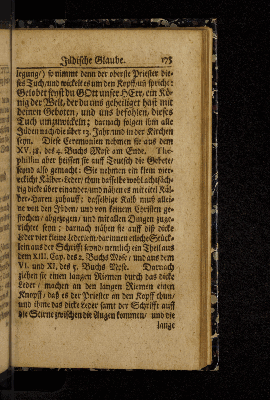 Jüdische Glaube. 175
legung/) so nimmt denn der oberste Priester die-
ses Tuch/und wickelt es um den Kopff/uñ spricht:
Gelobet seyst du GOtt unser HErr/ ein Kö-
nig der Welt/ der du uns geheiliget hast mit
deinen Geboten/ und uns befohlen/ dieses
Tuch umzuwickeln; darnach folgen ihm alle
Jüden nach/die über 13. Jahr und in der Kirchen
seyn. Diese Ceremonien nehmen sie aus dem
XV. 38. des 4. Buchs Mose am Ende.
phillin aber heissen sie auff Teutsch die Gebete/
seynd also gemacht: Sie nehmen ein klein vier-
ecklicht Kälber-Leder/ thun dasselbe wohl achtfäch-
tig dicke über einander/und nähen es mit eitel Käl-
ber-Haren zuhauff; dasselbige Kalb muß allei-
ne von den Jüden/ und von keinem Christen ge-
stochen/ abgezogen/ und mit allen Dingen zuge-
richtet seyn; darnach nähen sie auff diß dicke
Leder vier kleine Lederlein/darinnen etliche Stück-
lein aus der Schrifft seynd/nemlich ein Theil aus
dem XIII. Cap. des 2. Buchs Mose/ und aus dem
VI. und XI. des 5. Buchs Mose. Darnach
ziehen sie einen langen Riemen durch das dicke
Leder/ machen an den langen Riemen einen
Knopff/ daß es der Priester an den Kopff thun/
und ihme das dicke Leder samt der Schrifft auff
die Stirne zwischen die Augen kommen/ und die
lange